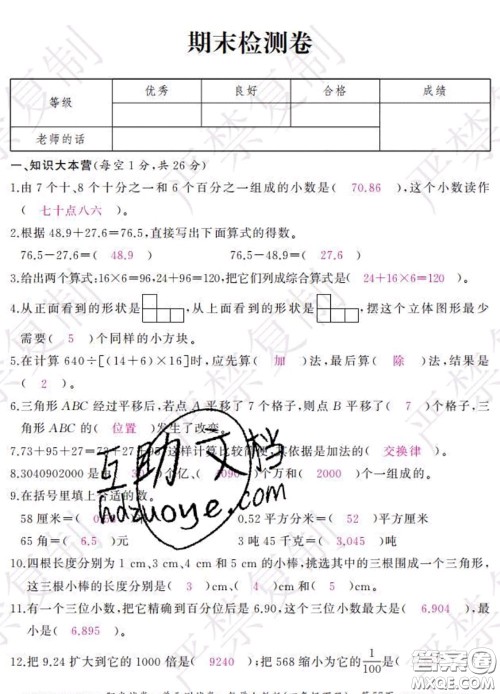 期末检测卷
等级 优秀 良好 合格 成绩
老师的话
一、知识大本营(每空1分,共26分)
1.由7个十、8个十分之一和6个百分之一组成的小数是( 70.86 ),这个小数读作
( 七十点八六 )。
2.根据48.9+27.6=76.5,直接写出下面算式的得数。
76.5-27.6=( 48.9 ) 76.5-48.9=( 27.6 )
3.给出两个算式:16×6=96,24+96=120,把它们列成综合算式是( 24+16×6=120 )
4.从正面看到的形状是 ,从上面看到的形状是 ,摆这个立体图形最少
需要( 5 )个同样的小方块。
5.在计算640÷[(14+6)×16]时,应先算( 加 )法,最后算( 除 )法,结果是
( 2 )。
6.三角形ABC经过平移后,若点A平移了7个格子,则点B平移了( 7 )个格子,三
角形ABC的( 位置 )发生了改变。
7.73+95+27=73+27+95这样计算比较简便,其依据是加法的( 交换律 )
8.3040902000是由( )个亿、( 4090 )个万和( 2000 )个一组成的。
9.在括号里填上合适的数。
58厘米=( 0.58 )米 0.52平方分米=( 52 )平方厘米
65角=( 6.5 )元 3吨45千克=( 3,045 )吨
10.四根长度分别为1 cm、3 cm、4 cm和5 cm的小棒,挑选其中的三根围成一个三角形,
这三根小棒的长度分别是( 3 )cm( 4 )cm和( 5 )cm。
11.有一个三位小数,把它精确到百分位后是6.90,这个三位小数最大是( 6.904 ),最
小是( 6.895 )。
12.把9.24扩大到它的1000倍是( 9240 ),把568缩小为它的1/100是(
互助文档
hdzuoye.com
严禁复制
答案圈
MXQE.COM